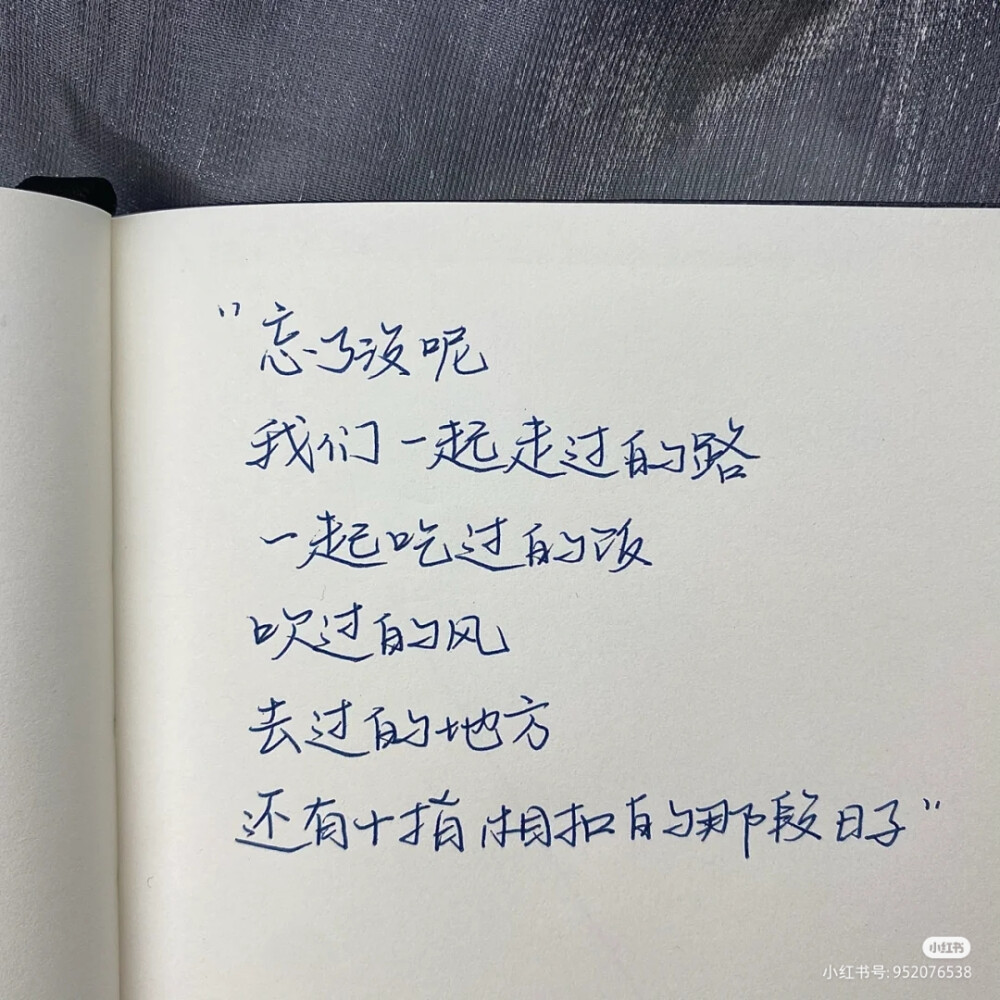 "忘了没呢
我们一起走过的路
一起吃过的饭
吹过的风
去过的地方
还有十指相扣的那段日子"
小红书
小红书号:952076538